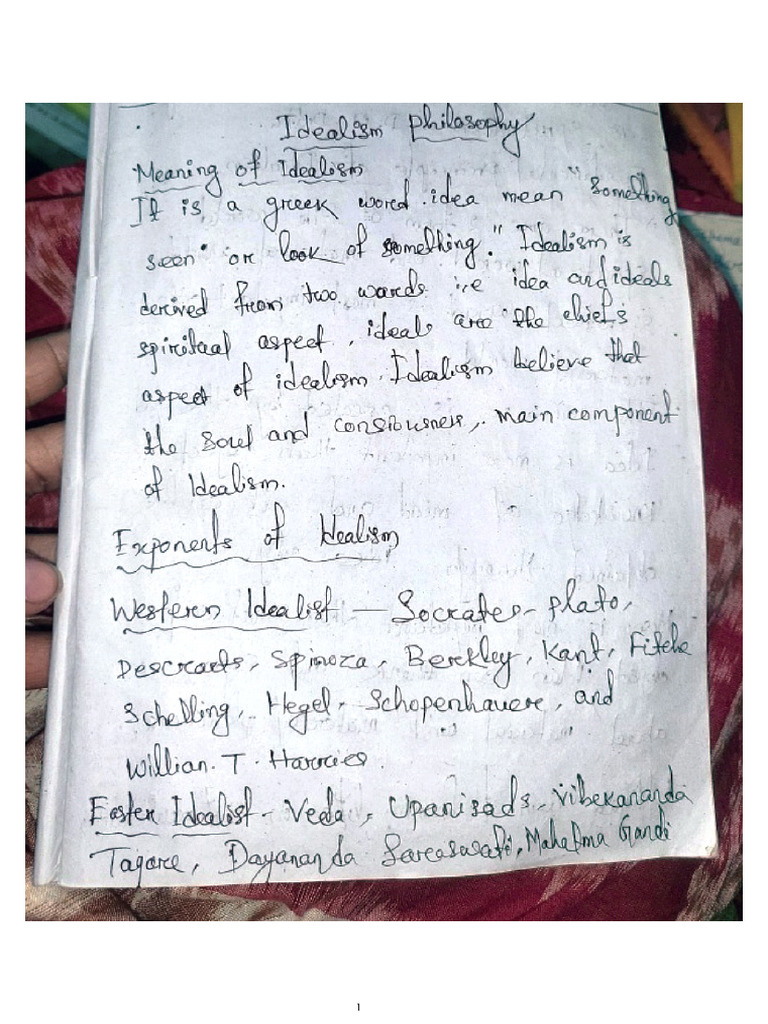 Idealism philosophy
Meaning of Idealism
It is a greek word. idea mean "something
seen" or look of something." Idealism is
derived from two wards i.e idea and ideals
spiritual aspect, ideals are the chiefs
aspect of idealism. Idealism believe that
the soul and consiousness, main component
of Idealism.
Exponents of Idealism
Western Idealist — Socrates - plato,
Descraets, Spinoza, Berekley, Kant, Fitche
Schelling, Hegel, Schopenhauere, and
Willian. T. Harries
Easten Idealist - Veda, Upanisads, Vibekananda
Tagore, Dayananda Saraswati, Mahatma Gandi
1